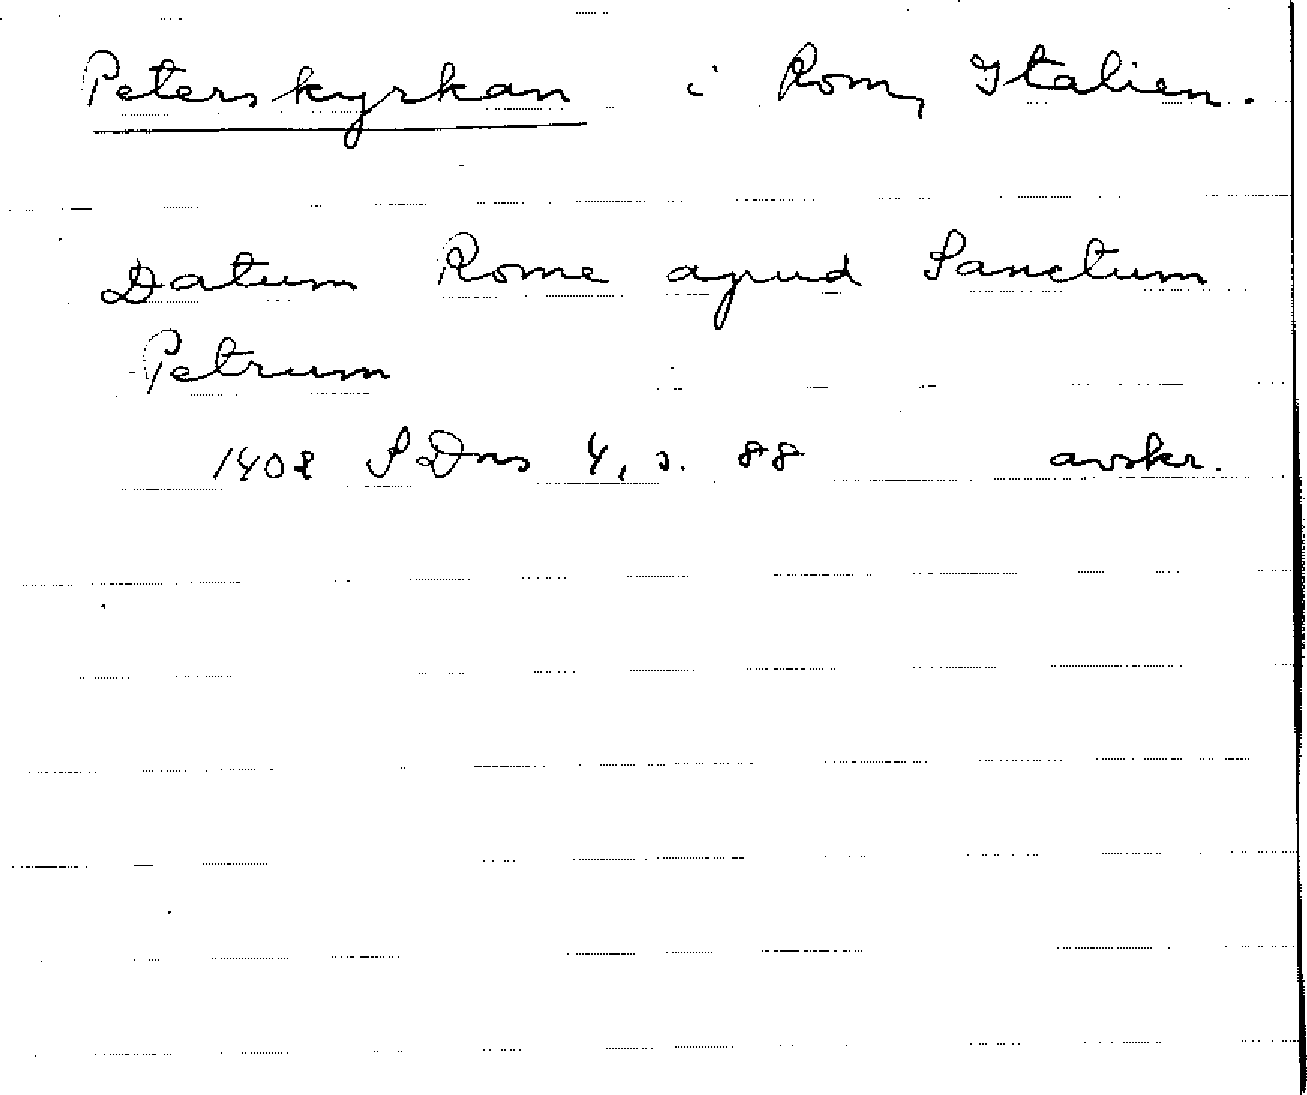 Peterskyrkan i Rom, Italien.
Datum Rome apud Sanctum
Petrum
1408 SDns 4, s. 88 avskr.